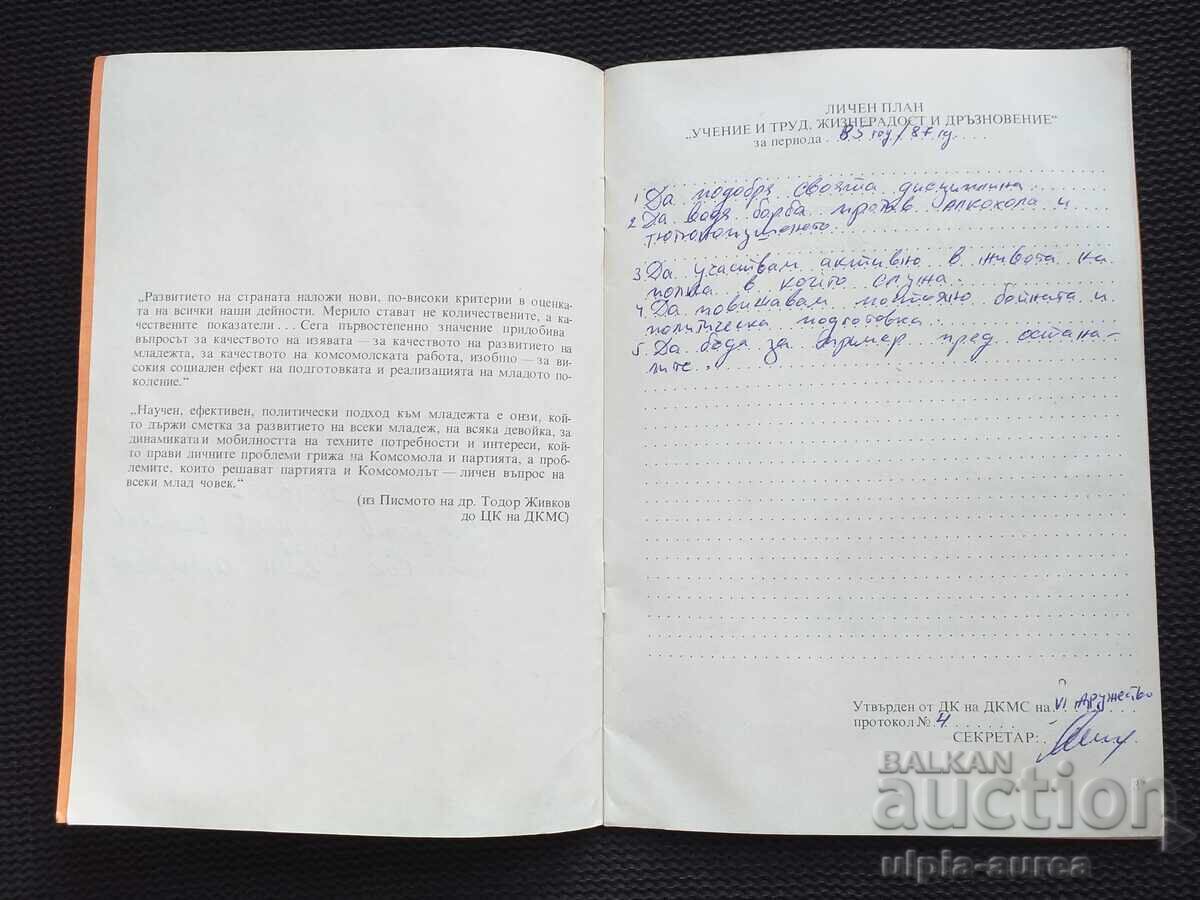 „Развитието на страната наложи нови, по-високи критерии в оценка-
та на всички наши дейности. Мерило стават не количествените, а ка-
чествените показатели . . . Сега първостепенно значение придобива
въпросът за качеството на изявата — за качеството на развитието на
младежта, за качеството на комсомолската работа, изобщо — за ви-
сокия социален ефект на подготовката и реализацията на младото по-
коление.“
„Научен, ефективен, политически подход към младежта е онзи, кой-
то държи сметка за развитието на всеки младеж, на всяка девойка, за
динамиката и мобилността на техните потребности и интереси, кой-
то прави личните проблеми грижа на Комсомола и партията, а проб-
лемите, които решават партията и Комсомолът — личен въпрос на
всеки млад човек.“
(из Писмото на др. Тодор Живков
до ЦК на ДКМС)
ЛИЧЕН ПЛАН
„УЧЕНИЕ И ТРУД, ЖИЗНЕРАДОСТ И ДРЪЗНОВЕНИЕ“
за периода 85 год / 87 г.
1. Да подобря своята дисциплина
2. Да водя борба против алкохола и
тютюнопушенето
3. Да участвам активно в живота на
полка в който служа.
4. Да повишавам бойната и
политическа подготовка.
5. Да бъда за пример пред остана-
лите.
Утвърден от ДК на ДКМС на VI дружество
протокол № 4
СЕКРЕТАР:
BALKAN
auction
ulpia-aurea